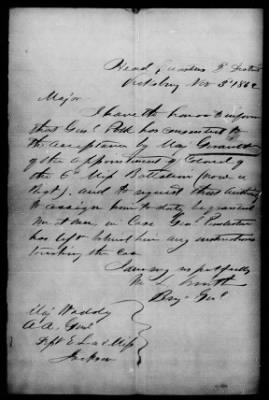 Head Quarters 2d District
Vicksburg Nov 3d 1862
Major
I have the honor to inform
that Genl Polk has consented to
the acceptance by Maj
of the appointment of Colonel of
the 6th Miss Battalion (now a
Regt), and to request that authority
to assign him to duty be granted
me at once, in case Genl Pemberton
has left behind him any instructions
touching the case
I am very respectfully
M L Smith
Brig Genl
Maj Waddy
A. A. Genl
Dept E. La & Miss
Jackson